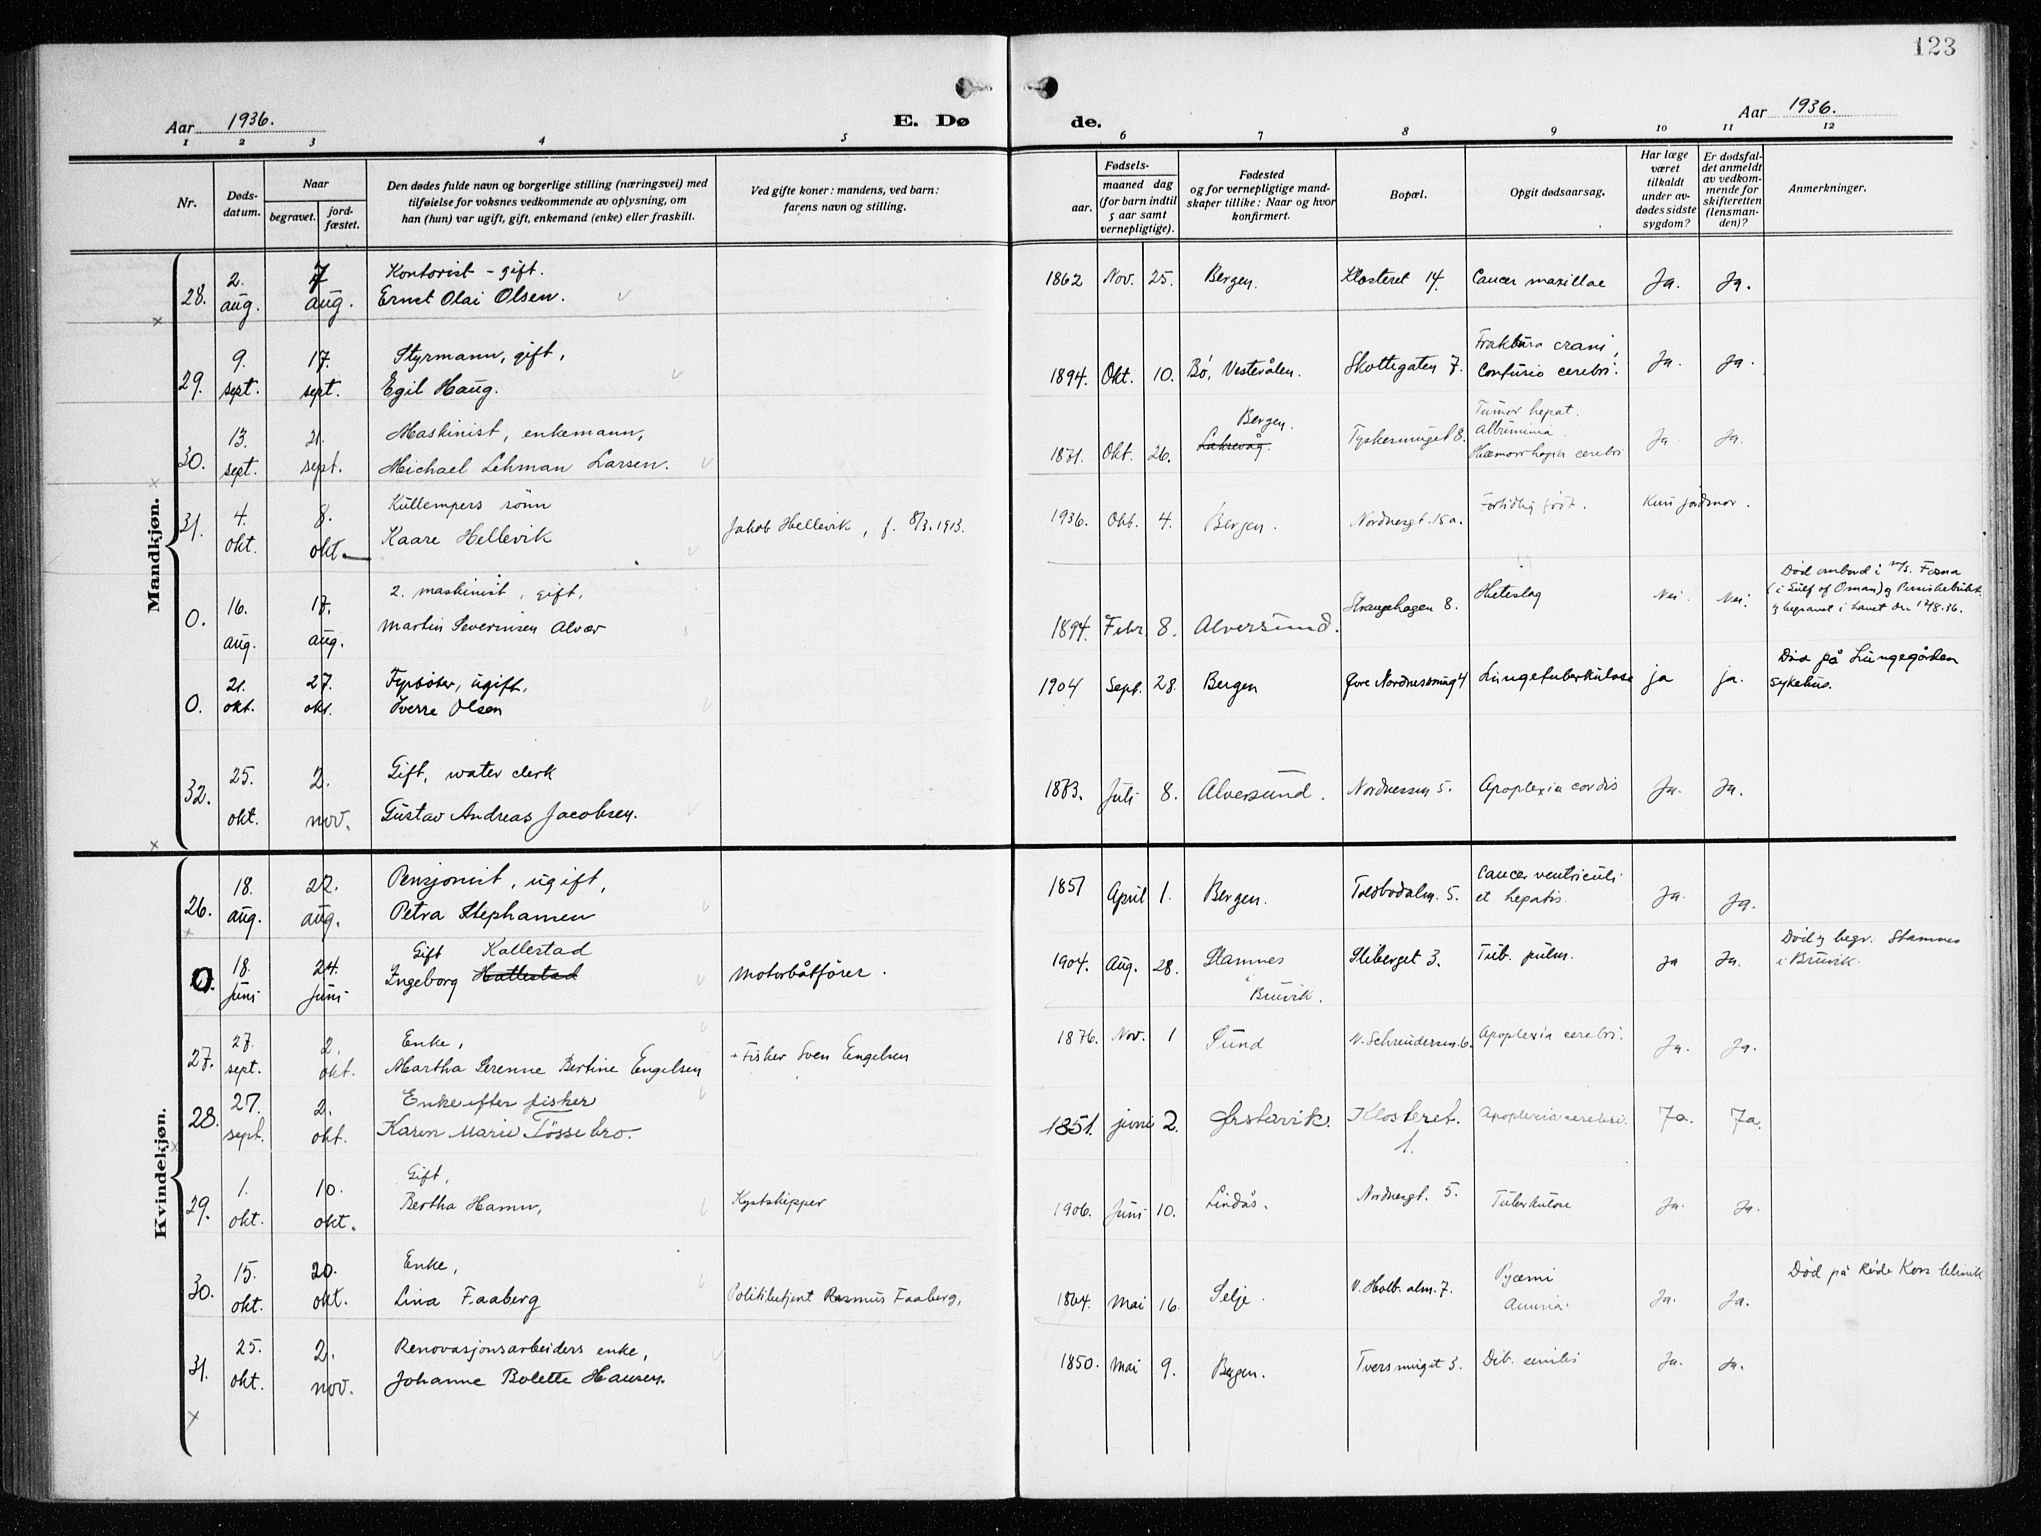 123
Aar 1936.
E. Dø
de.
Aar 1936.
1 2 3 4 5 6 7 8 9 10 11 12
Nr.
Døds-
datum.
Naar
begravet.
jord-
fæstet.
Den dødes fulde navn og borgerlige stilling (næringsvei) med
tilføielse for voksnes vedkommende av oplysning, om
han (hun) var ugift, gift, enkemand (enke) eller fraskilt.
Ved gifte koner: mandens, ved barn:
farens navn og stilling.
Fødsels-
aar.
maaned dag
(for barn indtil
5 aar samt
vernepligtige).
Fødested
og for vernepligtige mand-
skaper tillike: Naar og hvor
konfirmert.
Bopæl.
Opgit dødsaarsag.
Har læge
været
tilkaldt
under av-
dødes sidste
sygdom?
Er dødsfal-
det anmeldt
av vedkom-
mende for
skifteretten
(lensman-
den)?
Anmerkninger.
Mandkjøn.
28. 2. aug. 7 aug. Kontorist - gift.
Ernst Olai Olsen.
1862 Nov. 25. Bergen. Klosteret 14. Cancer maxillae Ja. Ja.
29. 9. sept. 17. sept. Styrmann, gift,
Egil Haug.
1894. Okt. 10. Bø, Vesterålen. Skottegaten 7. Fraktura crani,
Confusio cerebri. Ja. Ja.
30. 13. sept. 21. sept. Maskinist, enkemann,
Michael Lehman Larsen.
1871. Okt. 26. Bergen.
Laksevåg. Tyskesmuget 8. Tumor hepat.
Albuminia.
Hæmorrhagia cerebri Ja. Ja.
31. 4. okt. 8. okt. Kullempers sønn
Kaare Hellevik
Jakob Hellevik, f. 8/3.1913.
1936. Okt. 4. Bergen. Nordnesgt. 15a. Fortidlig født. Kun jordmor.
0. 16. aug. 17. aug. 2. maskinist, gift,
Martin Severinsen Alvær
1894. Febr. 8. Alversund. Strangehagen 8. Heteslag Nei. Nei.
Død ombord i M/S. Fosna
(i Gulf of Oman) og Persiskebukt
og begravet i havet den 17.8.36.
0. 21. okt. 27. okt. Fyrbøter, ugift,
Sverre Olsen
1904 Sept. 28. Bergen Øvre Nordnessmug 4 Lungetuberkulose ja ja.
Død på Lungegården
sykehus.
32. 25. okt. 2. nov. Gift, water clerk
Gustav Andreas Jacobsen.
1883. Juli 8. Alversund. Nordnessm 5. Apoplexia cordis Ja. Ja.
Kvindekjøn.
26. 18. aug. 22. aug. Pensjonist, ugift,
Petra Stephansen
1851 April 1. Bergen. Toldbodalm. 5. Cancer ventriculi
et hepatis. Ja. Ja.
0. 18. Juni 24. Juni Gift Kallestad
Ingeborg Hallestad
Motorbåtfører.
1904. Aug. 28. Stamnes
i Bruvik. Stiberget 3. Tub. pulm. ja Ja.
Død og begr. Stamnes
i Bruvik.
27. 27. sept. 2. okt. Enke,
Martha Serenne Bertine Engelsen
+ Fisker Sven Engelsen
1876. Nov. 1 Sund V. Schreudersm. 6. Apoplexia cerebri. Ja. Ja.
28. 27. sept. 2. okt. Enke efter fisker
Karen Marie Tøssebro.
1851. juni 2. Ørstavik. Klosteret.
1. Apoplexia cerebri. Ja. Ja.
29. 1. okt. 10. okt. Gift,
Bertha Hamn,
Kystskipper
1906. Juni 10. Lindås. Nordnesgt. 5. Tuberkulose Ja. Ja.
30. 15. okt. 20. okt. Enke,
Lina Faaberg
Politibetjent Rasmus Faaberg,
1864. Mai 16. Selje. V. Holb. alm. 7. Pyæmi
Ja. Ja.
Død på Røde Kors klinik
31. 25. okt. 2. nov. Renovasjonsarbeiders enke,
Johanne Bolette Hansen.
1850. Mai 9. Bergen. Tversmuget 3. Deb. senilis Ja. Ja.